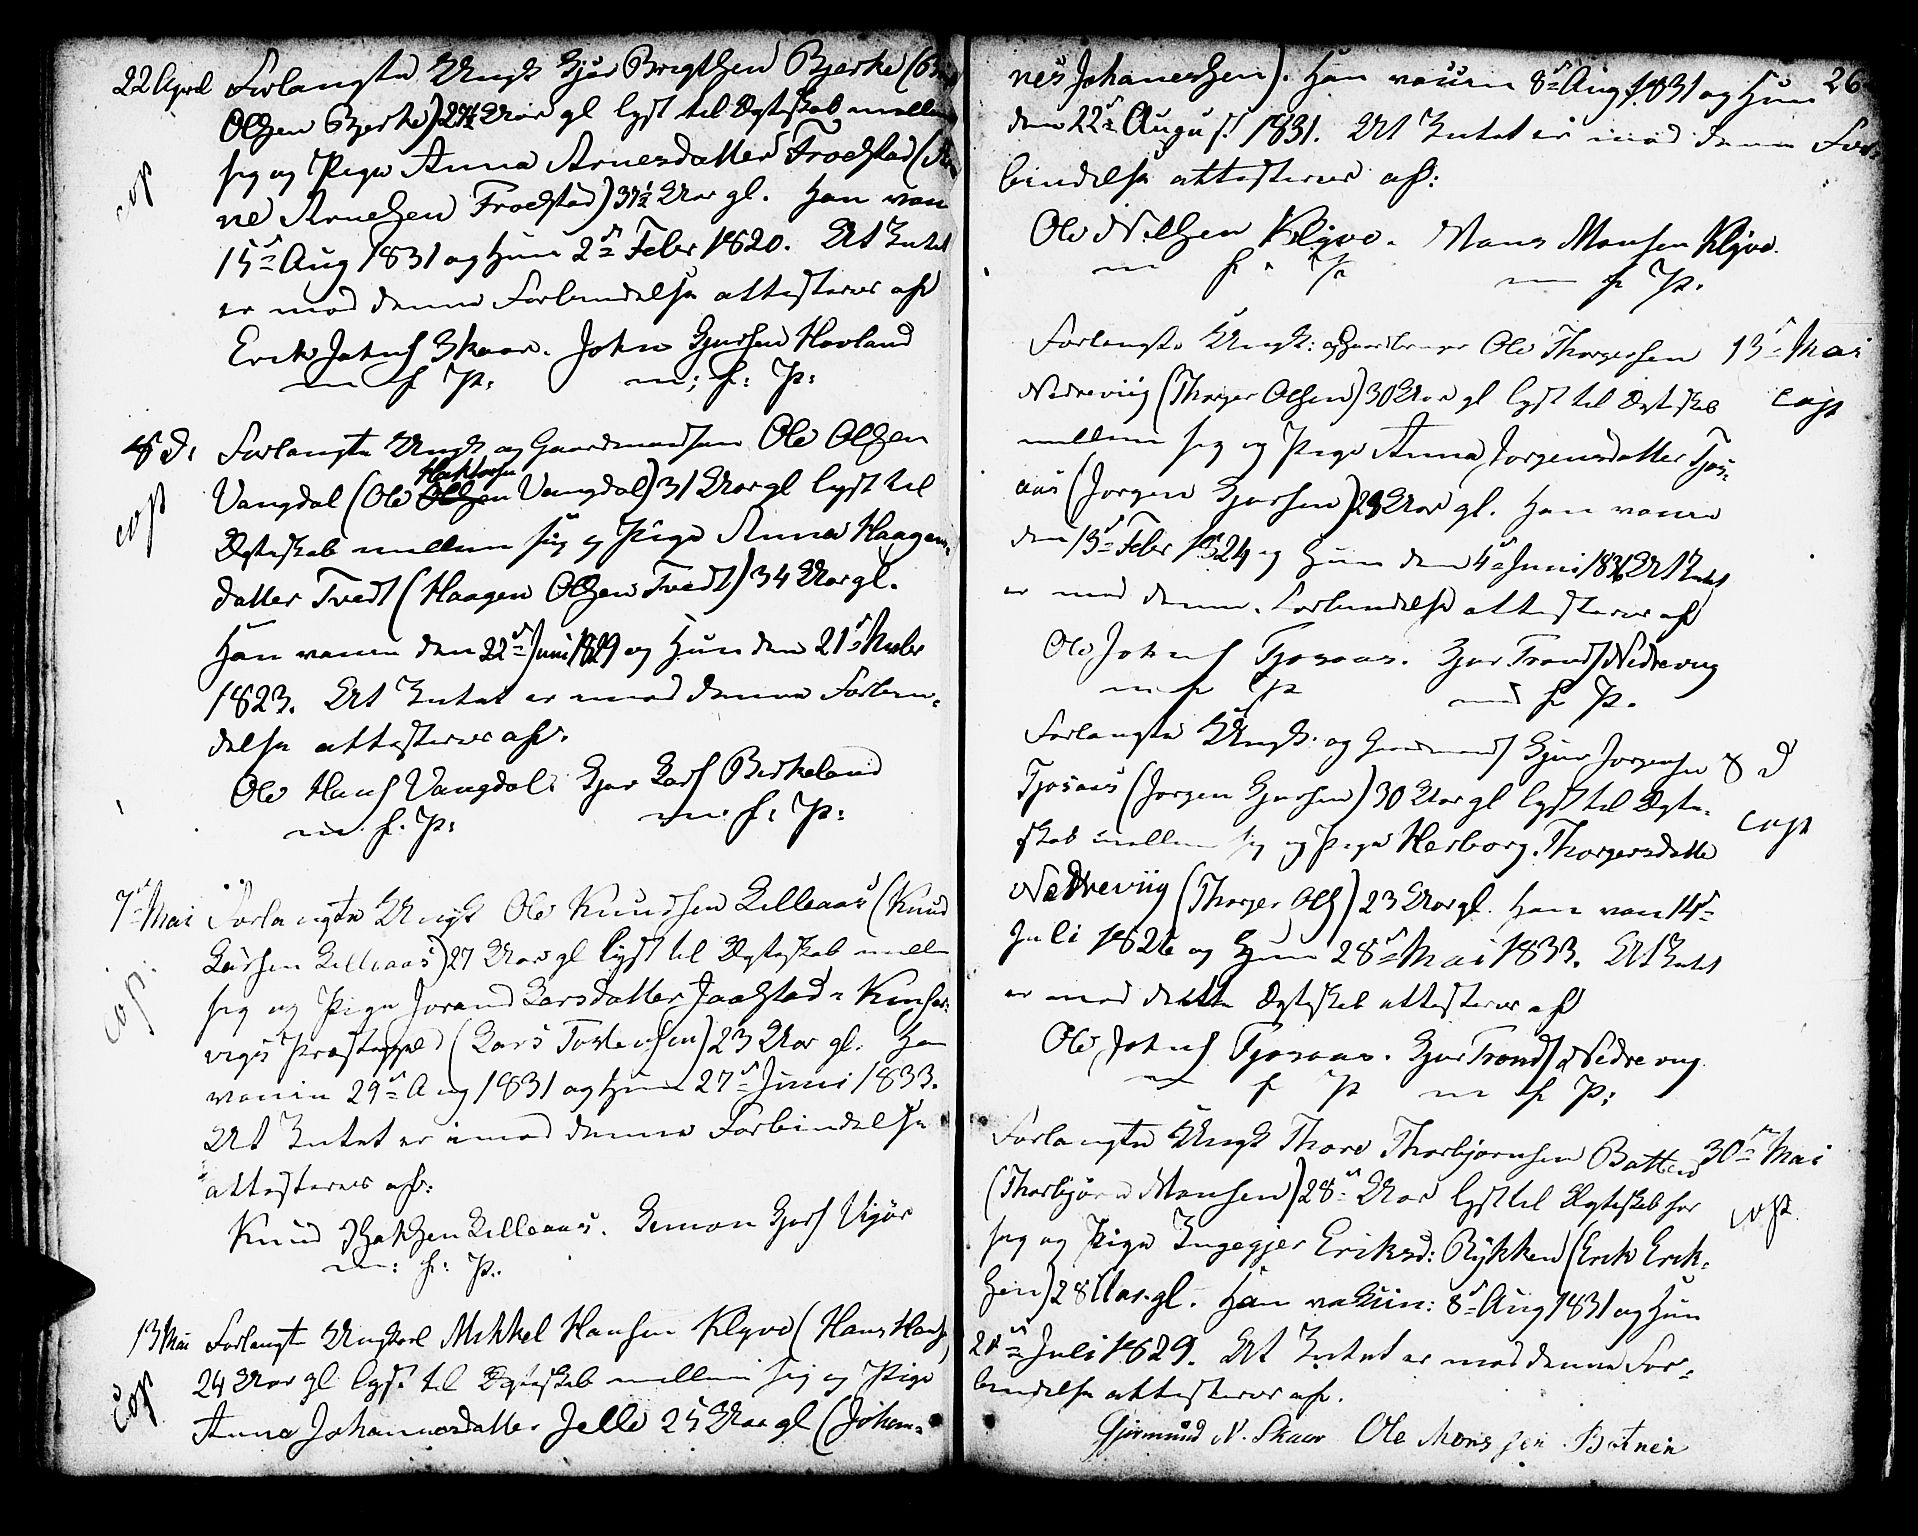 22 April Forlangte Ungk Gjør Brigthsen Bjerke (
Olhsen Bjerke) 24½ Aar gl lyst til Ægteskab mellem
cop
sig og Pige Anna Arnesdatter Frøelstad (Ar
ne Arnesen Froestad) 37½ Aar gl. Han vac
15de Aug 1831 og Hun 2de Febr 1820. At Intet
er mod denne Forbindelse attesteres af
Erik Johns Skaar. John Gjursen Hovland
m f P: m: f: P:
S: D: Forlangte Ungk og Gaardmandsøn Ole Olhsen
Hertorsen
Vangdal (Ole Olhsen Vangdal) 31 Aar gl lyst til
cop
Ægteskab mellem sig og Pige Anna Haagens
datter Tvedt (Haagen Olhsen Tvedt) 34 Aar gl.
Han vaccin den 22de Juni 1829 og Hun den 21de Novbr
1823. At Intet er mod denne Forbin-
delse attesteres af:
Ole Hans Vangdal. Gjør Lars Birkeland
m: f: P: m: f: P:
7de Mai Forlangte Ungk Ole Knudsen Lilleaas (Knud
Larsen Lilleaas) 27 Aar gl lyst til Ægteskab mellem
sig og Pige Jorand Larsdatter Jaastad i Kinser-
cop.
vigs Præstegjeld (Lars Torstensen) 23 Aar gl: Han
vaccin 29de Aug 1831 og Hun 27de Juni 1833.
At Intet er imod denne Forbindelse
attesteres af:
Knud Lilleaas. Simon Gjers Vigør
m: f: P:
13 Mai Forlangte Ungkarl Mikkel Hansen Klyve (Hans Hans)
24 Aar gl lyst til Ægteskab mellem sig og Pige
cop
Anna Johannesdatter Jelle 25 Aar gl (Johan-
nes Johanesen). Han vaccin 8de Aug 1831 og Hun 26
den 22de August 1831. At Intet er mod denne For-
bindelse attesteres af:
Ole Nilsen Klyve. Mons Monsen Klyve.
m f. P m f P.
Forlangte Ungk: og Gaardbruger Ole Thorgersen 13de Mai
Nedreviig (Thorger Olhsen) 30 Aar gl lyst til Ægteskab cop
mellem sig og Pige Anna Jorgensdatter Tjos-
aas (Jorgen Gjursen) 23 Aar gl. Han vaccin
den 13de Febr 1824 og Hun den 4de Juni 1836 At Intet
er mod denne Forbindelse attesteres af
Ole Johns Tjosaas. Gjør Tronds Nedrevig
m f P m f P.
Forlangte Ungk: og Gaardmands Gjør Jorgensen S D
Tjosaas (Jorgen Gjursen) 30 Aar gl lyst til Ægte-
skab mellem sig og Pige Herborg Thorgersdatter cop
Nedreviig (Thorger Ols) 23 Aar gl. Han vac 14de
Juli 1826 og Hun 28de Mai 1833. At Intet
er mod dette Ægteskab attesteres af
Ole Johns Tjosaas. Gjør Tronds Nedrevig
m f P m f P:
Forlangte Ungk Thore Thorbjørnsen Botten 30te Mai
(Thorbjørn Monsen) 28de Aar lyst til Ægteskab for
sig og Pige Ingegjer Eriksd: Rykken (Erik Erik- cop
sen) 28 Aar gl. Han vakcin: 8de Aug 1831 og Hun
21de Juli 1829. At Intet er mod denne For-
bindelse attesteres af.
Gjermund N. Skaar Ole Monssen Botnen